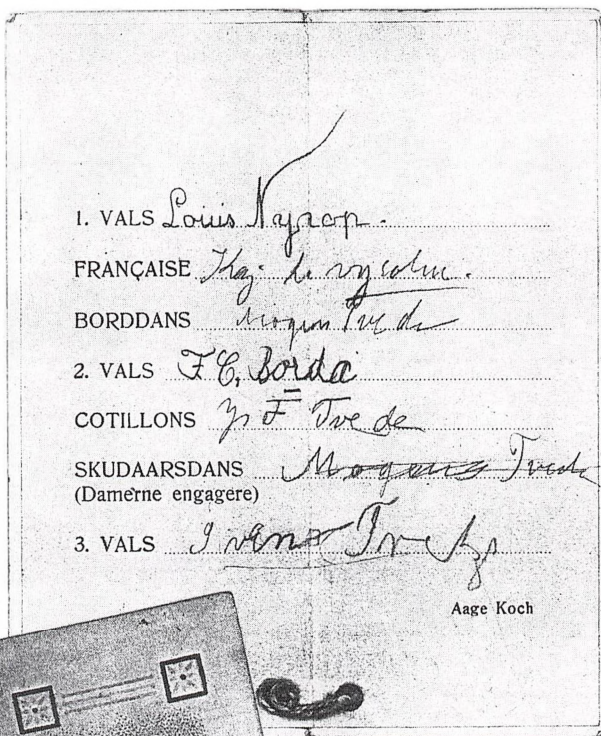 1. VALS Louis Nyrop.
FRANÇAISE Kaj
BORDDANS Mogens Tvede
2. VALS F C. Borda
COTILLONS F Tvede
SKUDAARSDANS Mogens Tvede
(Damerne engagere)
3. VALS
Aage Koch